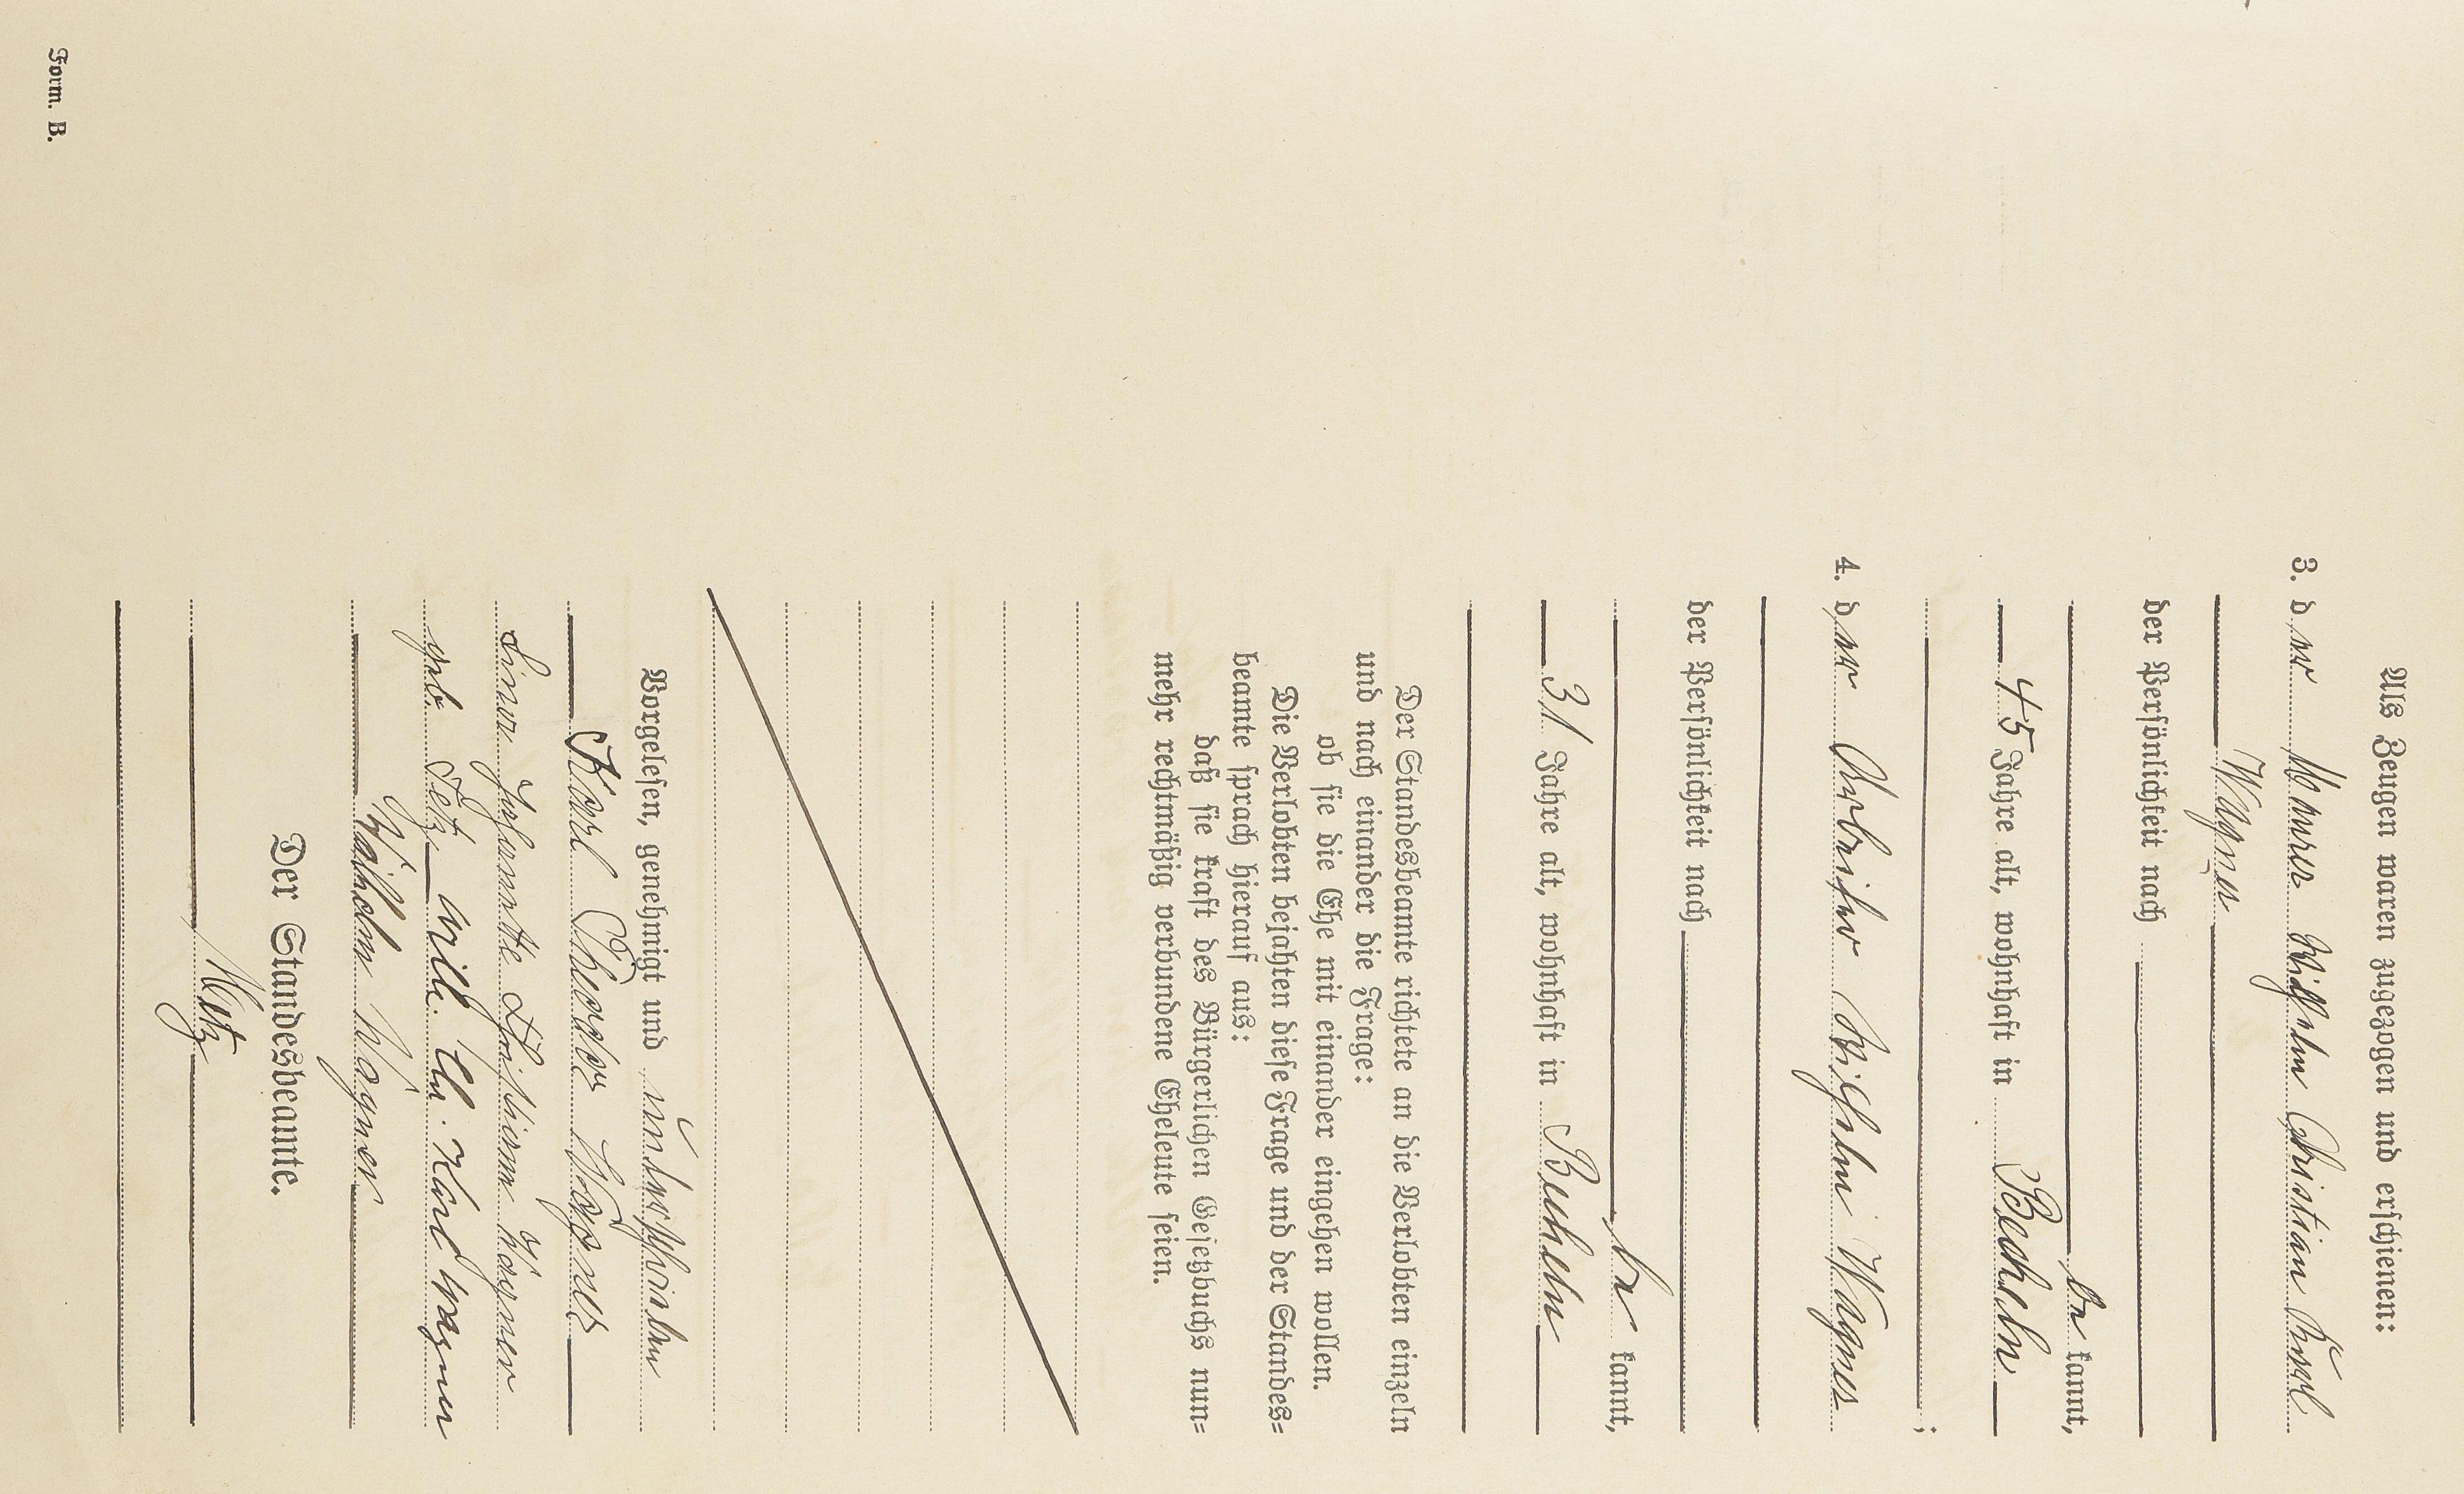 Als Zeugen waren zugezogen und erschienen:
3. der Maurer Wilhelm Christian Karl
Wagner
der Persönlichkeit nach
be kannt,
45 Jahre alt, wohnhaft in Becheln
;
4. der Arbeiter Wilhelm Wagner
der Persönlichkeit nach
be kannt,
31 Jahre alt, wohnhaft in Becheln
Der Standesbeamte richtete an die Verlobten einzeln
und nach einander die Frage:
ob sie die Ehe mit einander eingehen wollen.
Die Verlobten bejahten diese Frage und der Standes=
beamte sprach hierauf aus:
daß sie kraft des Bürgerlichen Gesetzbuchs nun=
mehr rechtmäßig verbundene Eheleute seien.
Vorgelesen, genehmigt und unterschrieben
Karl Theodor Wagner
Lina Johannette Wagner
geb. Wilh. Chr. Karl Wagner
Wilhelm Wagner
Der Standesbeamte.
Metz
Form. B.